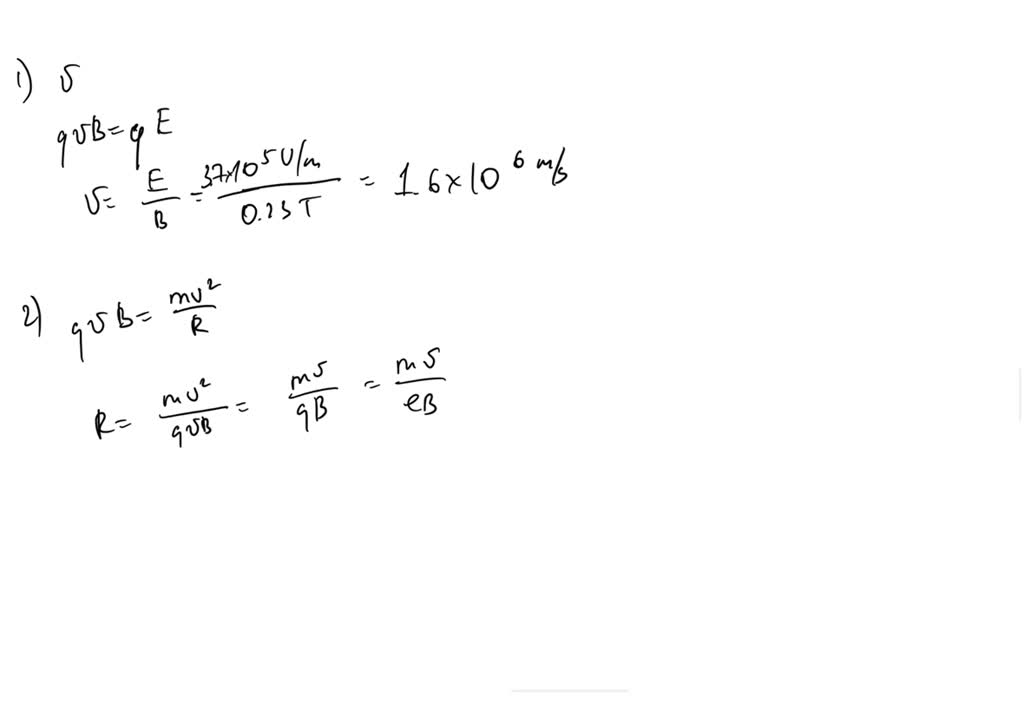 1) v
qvB = qE
v = E/B = 3.7×10^5 V/m / 0.23 T = 1.6 × 10^6 m/s
2) qvB = mv²/R
R = mv²/qvB = mv/qB = mv/eB